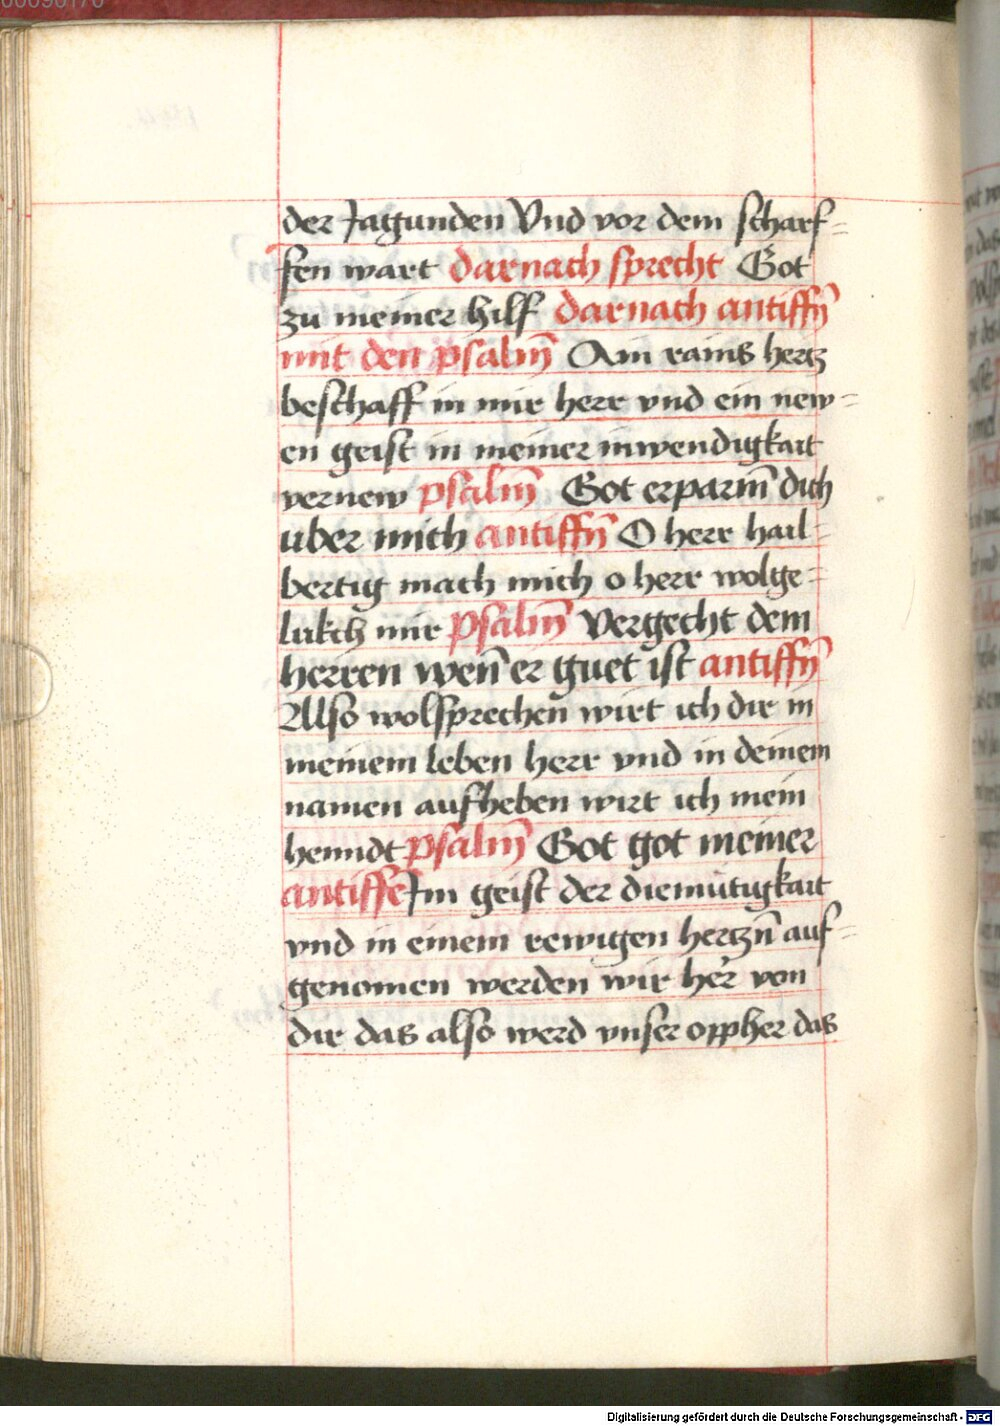 der Jagunden Vnd vor dem scharf=
fen wart darnach sprecht Got
zu meiner hilf darnach antiffn̄
mit den psalm̄ Ain rains hertz
beschaff in mir herr vnd ein new=
en geist in meiner inwendigkait
vernew psalm̄ Got erparm̄ dich
uber mich antiffn̄ O herr hail=
bertig mach mich o herr wolge=
lukch mir psalm̄ Vergecht dem
herren wen̄ er guet ist antiffn̄
Also wolsprechen̄ wirt ich dir in
meinem leben herr vnd in deinem
namen aufheben wirt ich mein
henndt psalm̄ Got got meiner
antiffē Im geist der diemütigkait
vnd in einem rewigen hertzn̄ auf=
genomen werden wir her̄ von
dir das also werd vnser oppher das
Digitalisierung gefördert durch die Deutsche Forschungsgemeinschaft - DFG